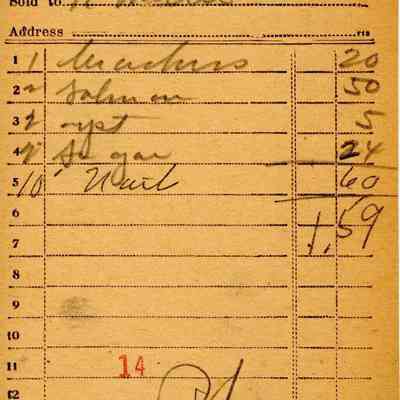 Sold to
Address
1 1 Crackers 20
2 2 Salmon 50
3 2 yst 5
4 4 Sugar 24
5 10 Nail 60
6 1,59
7
8
9
10
11 14
12 Pd